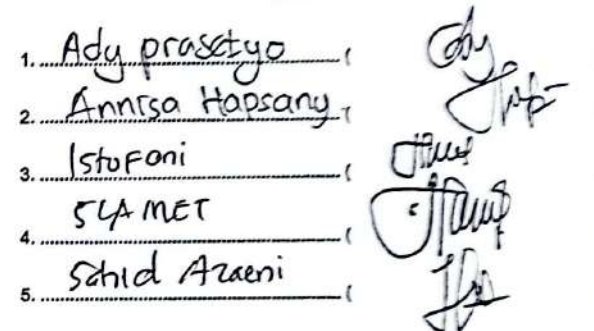 1. Ady prasetyo (
2. Annisa Hapsany (
3. Istofani (
4. SLAMET (
5. Sahid Azaeni (